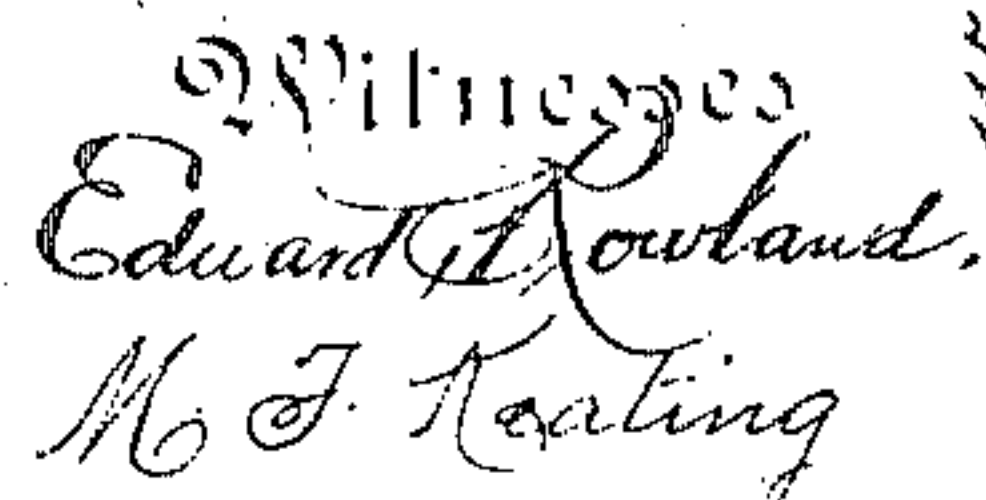 Witnesses
Edward Rowland.
M. F. Keating